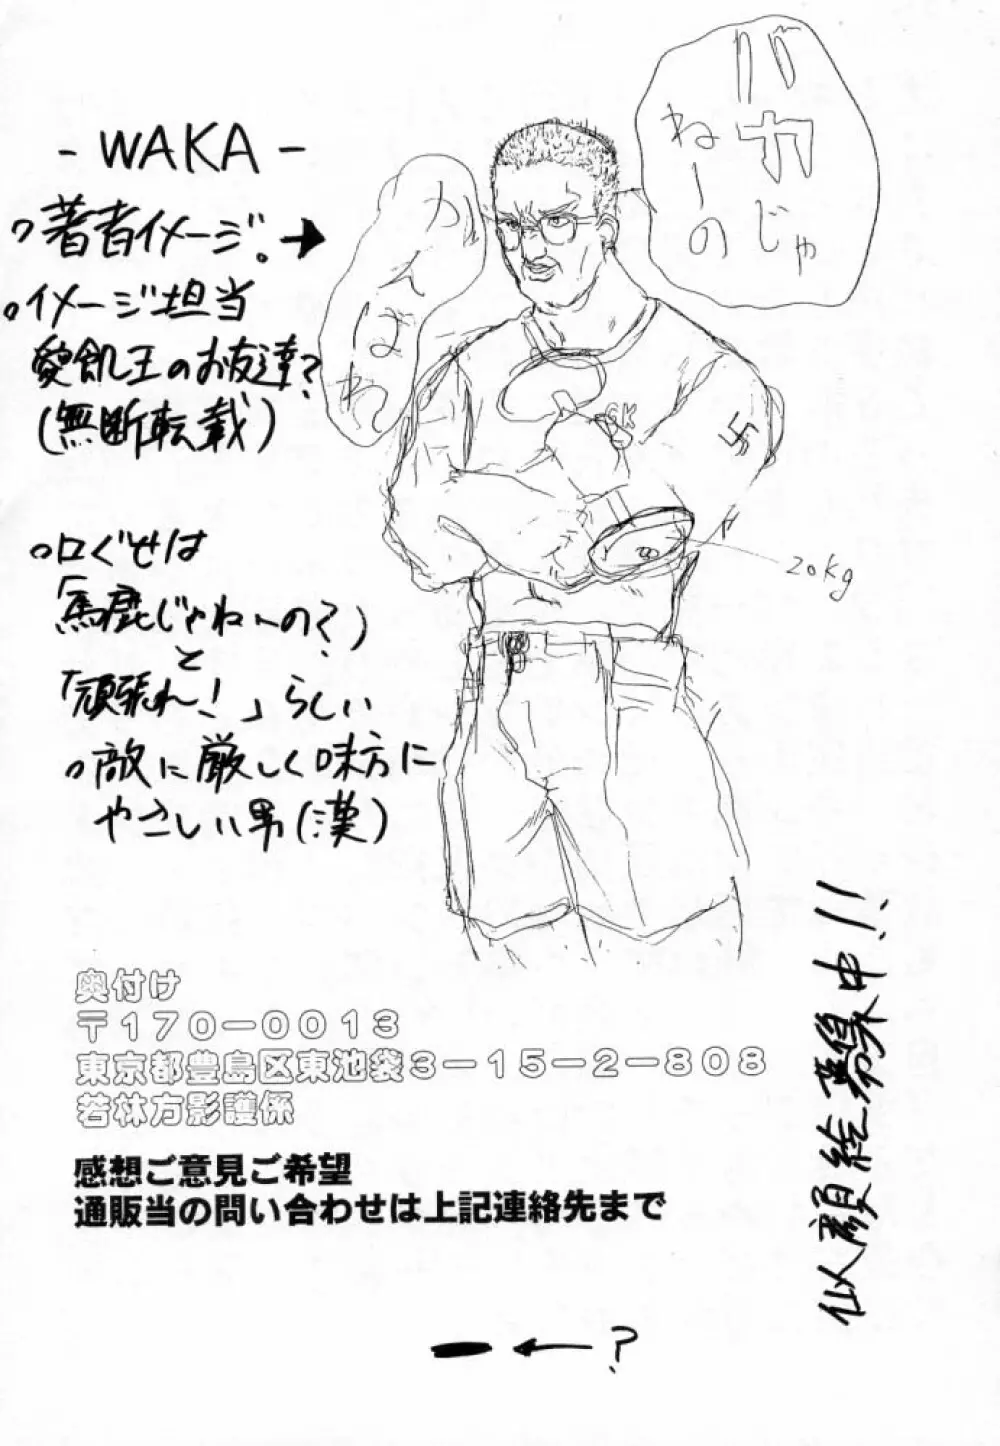 - WAKA -
○著者イメージ。→
○イメージ担当
愛飢王のお友達?
(無断転載)
○口ぐせは
「馬鹿じゃねーの?」
と
「頑張れ!」らしい
○敵に厳しく味方に
やさしい男(漢)
バカじゃ
ねーの
がん
ばれ
GK
20kg
似顔絵募集中!!
奥付け
〒170-0013
東京都豊島区東池袋3-15-2-808
若林方影護係
感想ご意見ご希望
通販当の問い合わせは上記連絡先まで
←?